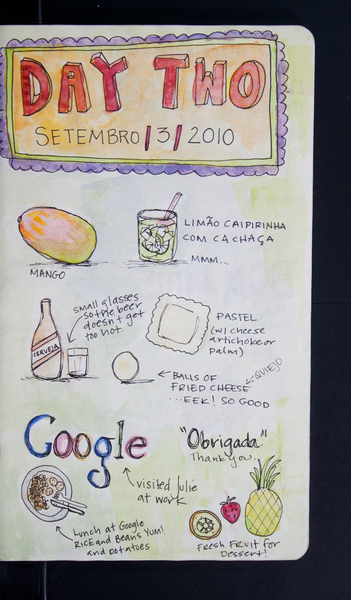 DAY TWO
SETEMBRO/3/2010
LIMÃO CAIPIRINHA
COM CACHAÇA
MMM...
MANGO
small glasses
so the beer
doesn't get
too hot.
CERVEJA
PASTEL
(w/ cheese
artichoke or
palm)
QUIEJO
BALLS OF
FRIED CHEESE
...EEK! SO GOOD
Google
"Obrigada."
Thank you.
visited Julie
at work
Lunch at Google
RICE and BEANS YUM!
and potatoes
FRESH FRUIT for
DESSERT!